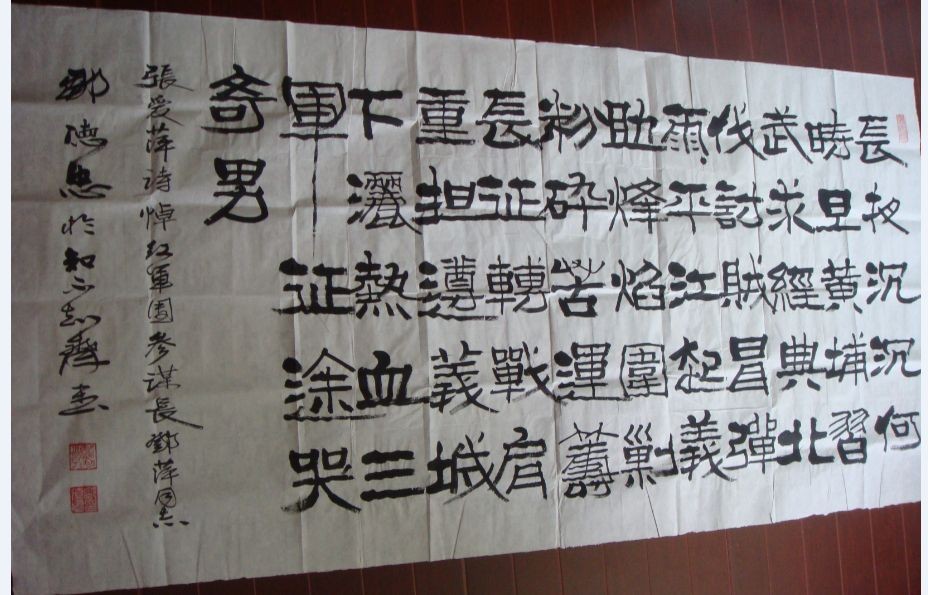 長夜沉沉何
時旦黃埔習
武求經典北
伐討賊冒彈
雨平江起義
助烽焰圍剿
粉碎苦運籌
長征轉戰肩
重担遵義城
下灑熱血三
軍征涂哭
奇男
張爱萍詩悼红軍團參謀長鄧萍同志
德忠於知不知齋書